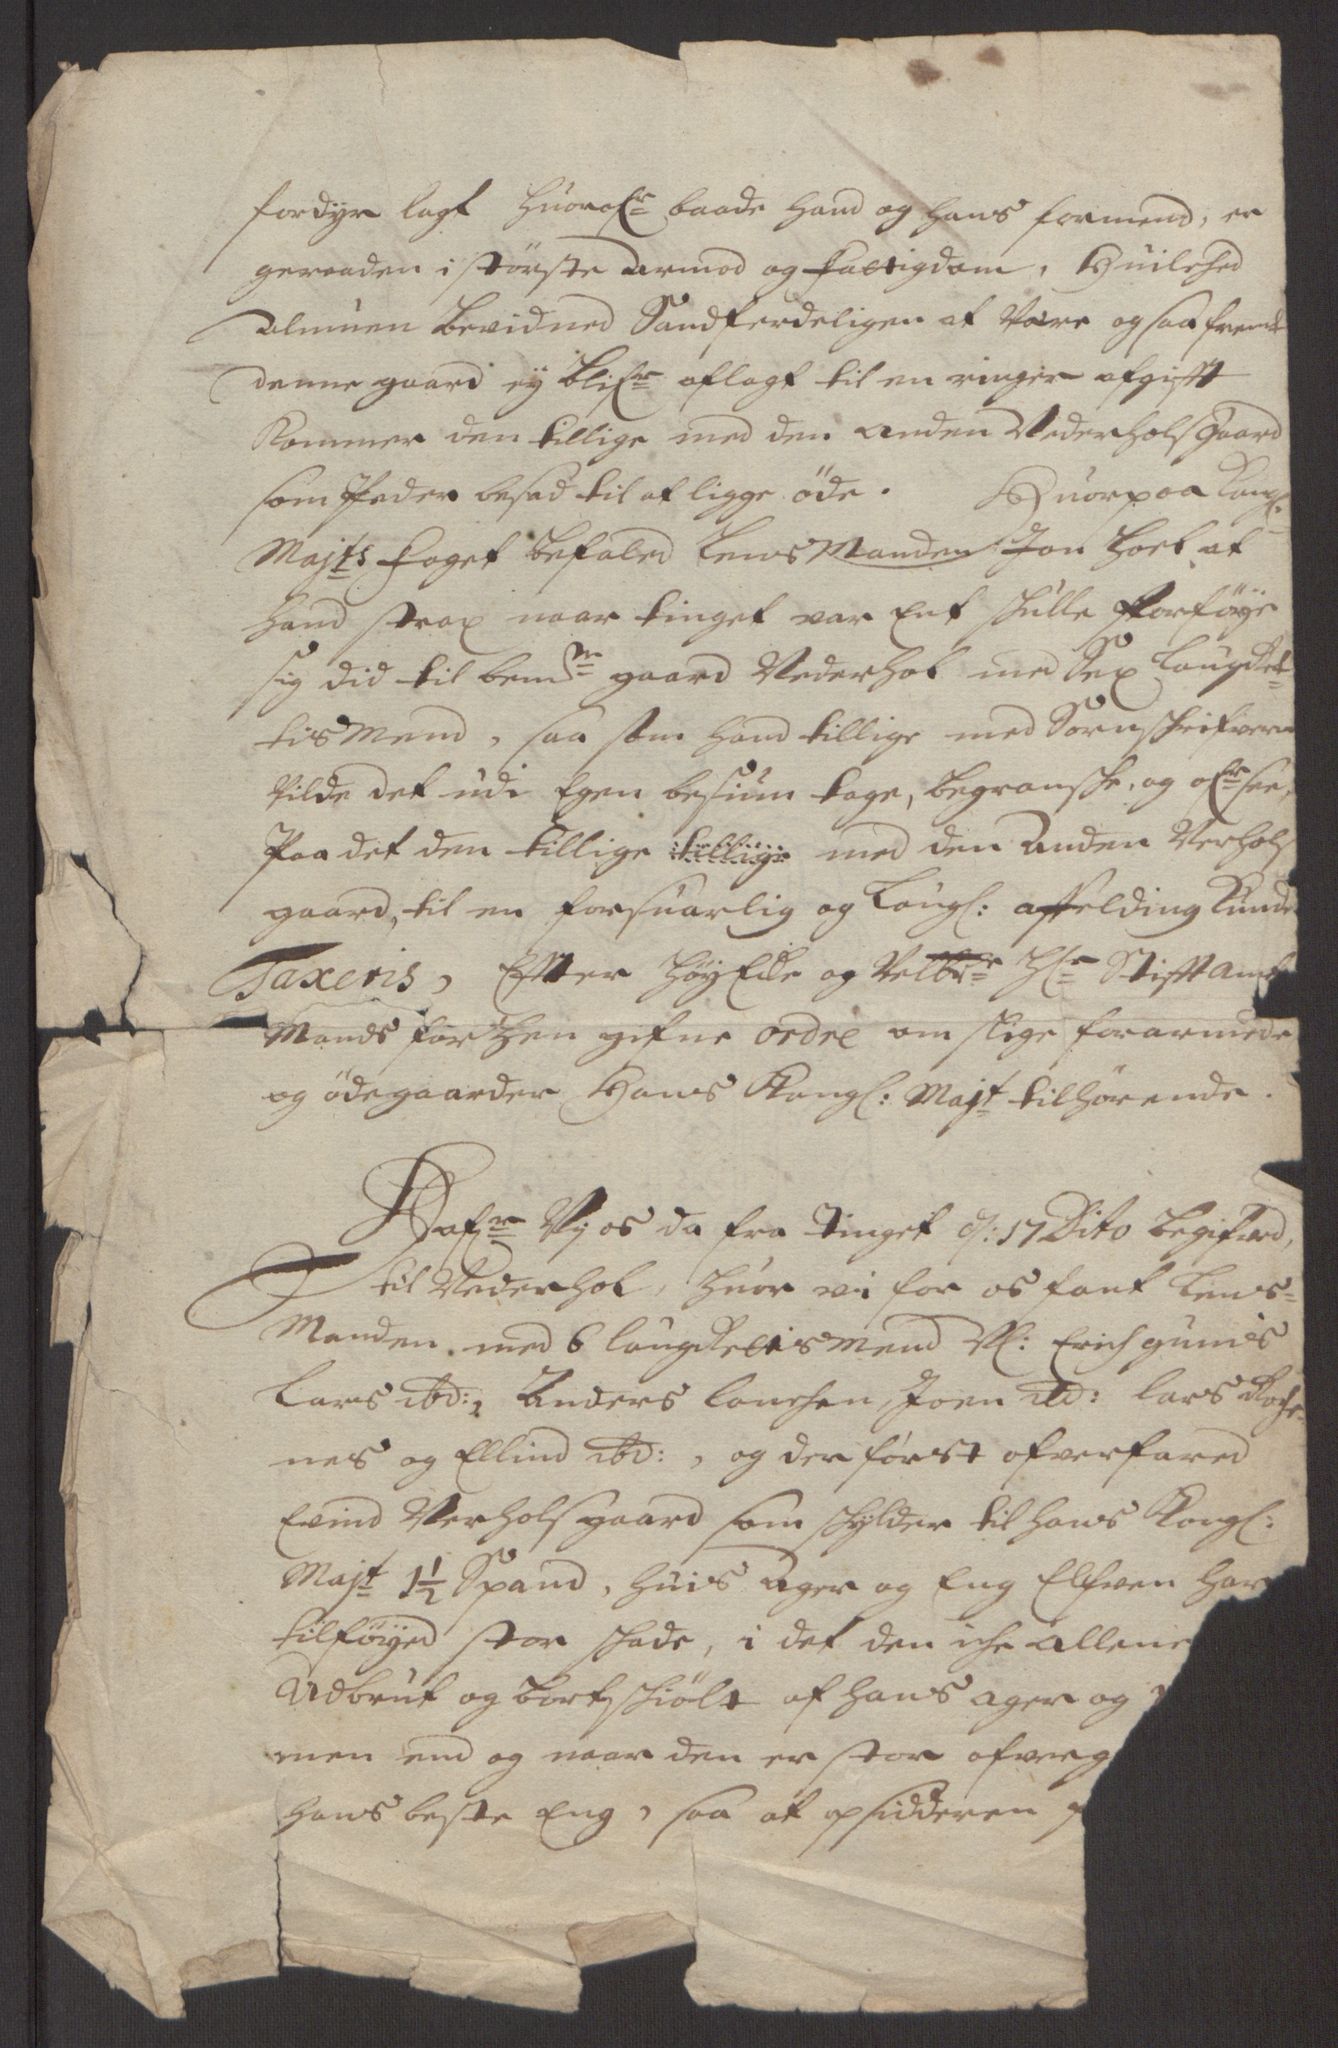 fordyr lagt huorofr baade hand og hans formend, er
geraaden i störste Armod og Fattigdom, Huilched
Almuen bevidned Sandferdeligen at Være og saa fremt
denne gaard ey blifr aflagt til en ringer afgifft
Kommer den tillige med den anden Vederhols gaard
som Peder besad til at ligge öde. Huorpaa Kongl:
Majts Foget befaled LensManden Jon Hoel at
hand strax naar tinget var Ent skulle Forföye
sig did til bemte gaard Vederhol med Sex Laugret-
tis Mend, saa som hand tillige med Sornschrifveren
Vilde det udi Egen besiun tage, begransche, og ofrsee,
Paa det den tillige tillige med den Anden Verhols
gaard, til en forsuarlig og Laugl: affelding Kunde
Taxeris, Effter HöyEdle og Velbr Hr StifftAmbt
Mands forhen gifne ordre om slige forarmede
og ödegaarder Hans Kongl: Majt tilhörende.
Hafr Vj os da fra Tinget d: 17 Dito begifved,
til Vederhol, huor vi for os fant Lens-
Manden med 6 laugrettis Mend Nl: Erich gunnes
Lars ibd:, Anders lonchen, Joen ibd: Lars Kosse-
nes og Ellind ibd:, og der först ofverfared
Evind Verhols gaard som schylder til hans Kongl:
Majt 1½ Spand, huis Ager og Eng Elfven har
tilföyed stor schade, i det den iche allene
Udbrut og bortschiölt af hans ager og
men end og naar den er stor ofver
hans beste Eng, saa at opsidderen